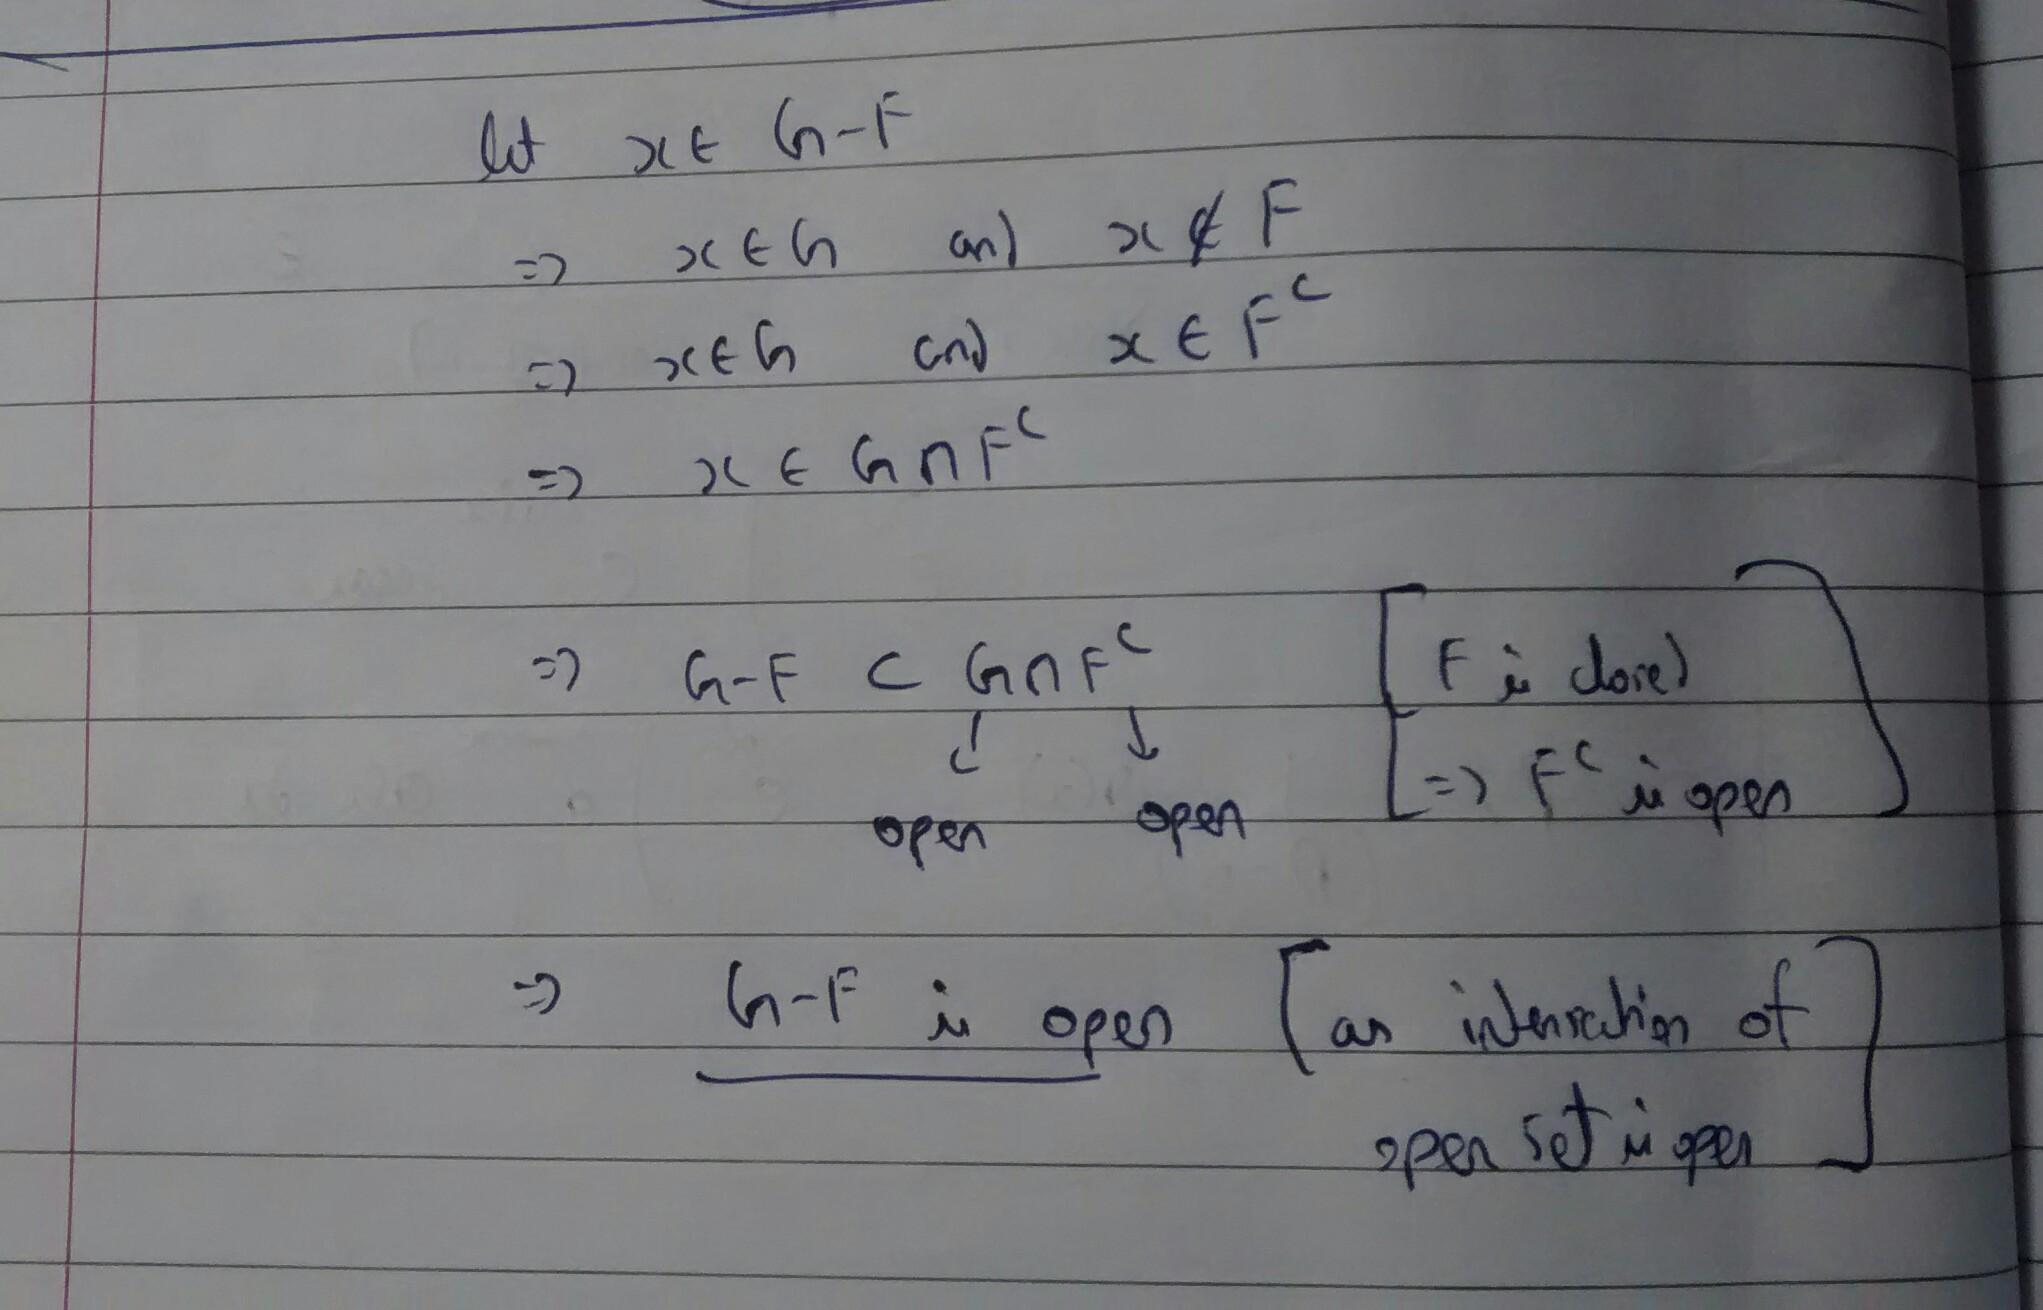 let x ∈ G-F
=> x ∈ G and x ∉ F
=> x ∈ G and x ∈ F^c
=> x ∈ G ∩ F^c
=> G-F ⊂ G ∩ F^c [F is closed
↓ ↓ => F^c is open]
open open
=> G-F is open [as intersection of
open set is open]